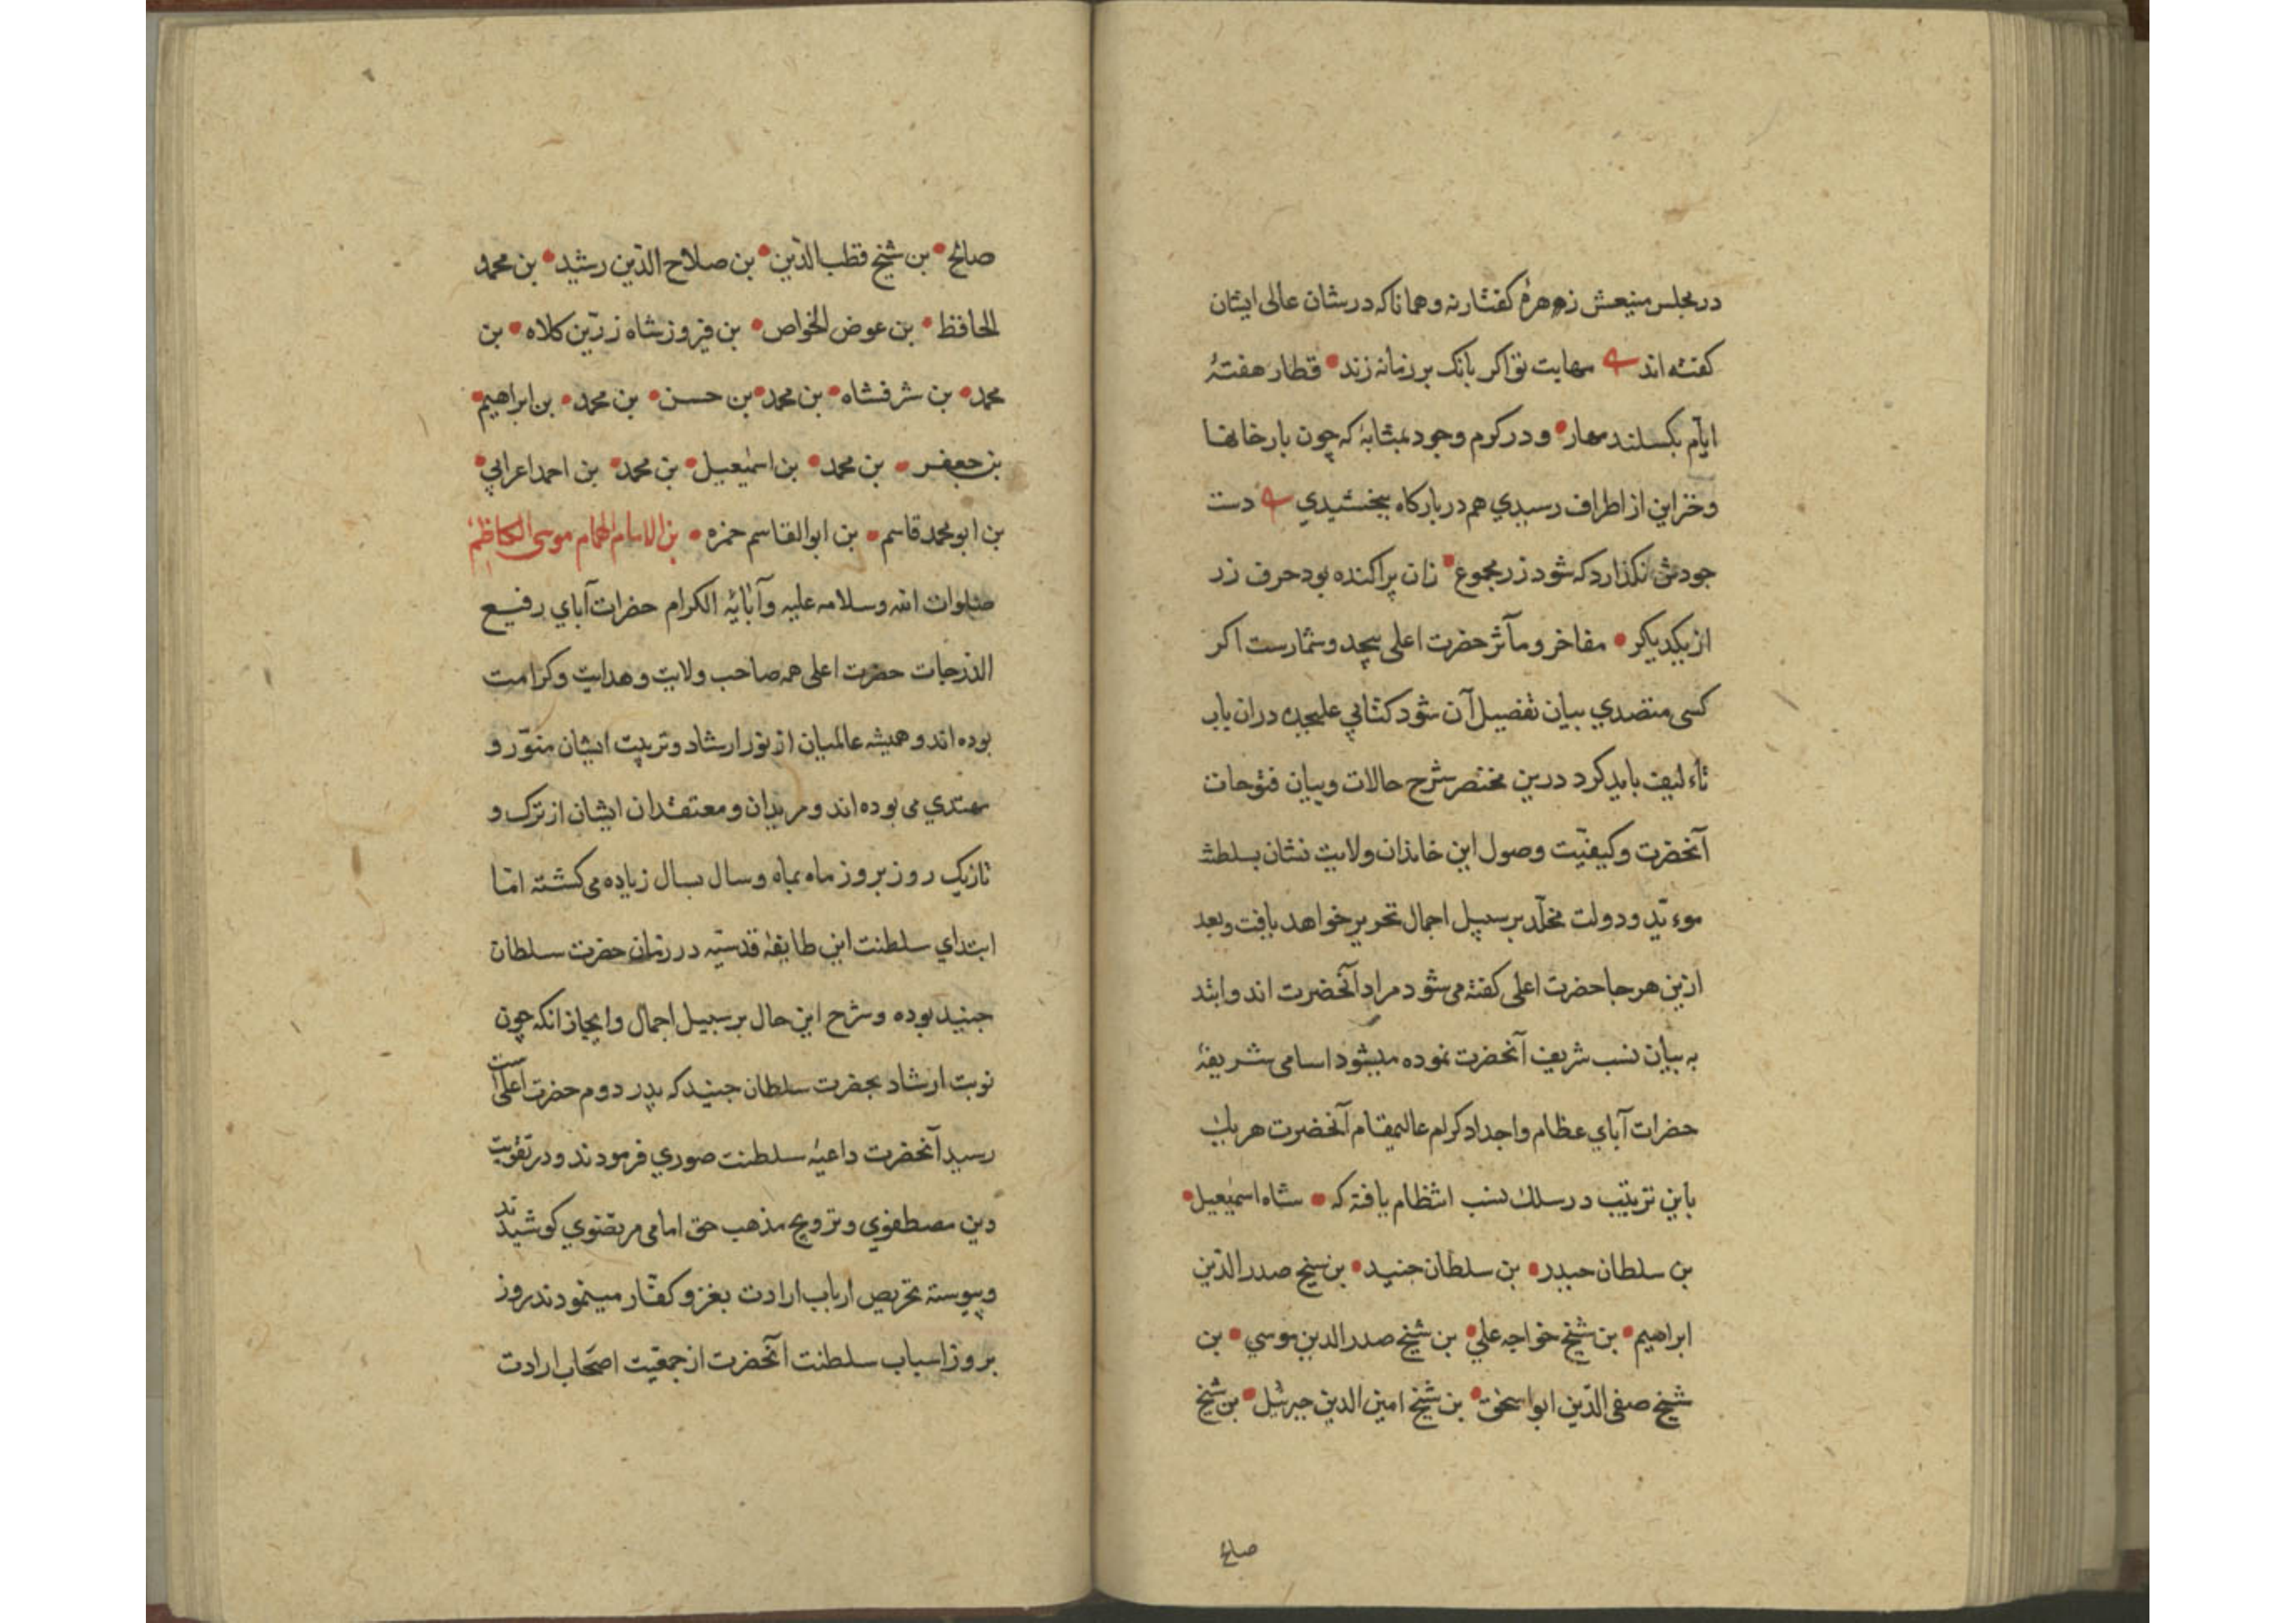 در مجلس منیعش زهرهٔ گفتار نه و همانا که در شان عالی ایشان
کفته اند مهابت تو اکر بانک بر زمانه زند قطار هفتهٔ
ایام بکسلند مهار و در کرم وجود بمثابهٔ که چون بار خانها
و خزاین از اطراف رسیدی هم در بارکاه ببخشیدی دست
جودش نکذارد که شود زر مجموع زان پراکنده بود حرف زر
از یکدیکر مفاخر و مآثر حضرت اعلی بیحد و شمارست اکر
کسی متصدی بیان تفصیل آن شود کتابی علیحده دران باب
تاءلیف باید کرد درین مختصر شرح حالات و بیان فتوحات
آنحضرت و کیفیّت وصول این خاندان ولایت نشان بسلطنت
موءیّد و دولت مخلّد بر سبیل اجمال تحریر خواهد یافت و بعد
ازین هر جا حضرت اعلی کفته می شود مراد آنحضرت اند و ابتدا
به بیان نسب شریف آنحضرت نموده میشود اسامی شریفهٔ
حضرات آبای عظام و اجداد کرام عالیمقام آنحضرت هر یک
باین ترتیب در سلک نسب انتظام یافته که شاه اسمٰعیل
بن سلطان حیدر بن سلطان جنید بن شیخ صدر الدّین
ابراهیم بن شیخ خواجه علی بن شیخ صدر الدین موسی بن
شیخ صفی الدّین ابو اسحٰق بن شیخ امین الدین جبرئیل بن شیخ
صالح
صالح بن شیخ قطب الدّین بن صلاح الدّین رشید بن محمد
الحافظ بن عوض الخواص بن فیروز شاه زرّین کلاه بن
محمد بن شرفشاه بن محمد بن حسن بن محمد بن ابراهیم
بن جعفر بن محمد بن اسمٰعیل بن محمد بن احمد اعرابی
بن ابو محمد قاسم بن ابو القاسم حمزه بن الامام الهمام موسی الکاظم
صلوات الله و سلامه علیه و آبایٔه الکرام حضرات آبای رفیع
الدّرجات حضرت اعلی همه صاحب ولایت و هدایت و کرامت
بوده اند و همیشه عالمیان از نور ارشاد و تربیت ایشان منوّر و
مهتدی می بوده اند و مریدان و معتقدان ایشان از ترک و
تازیک روز بروز ماه بماه و سال بسال زیاده می کشته امّا
ابتدای سلطنت این طایفهٔ قدسیّه در زمان حضرت سلطان
جنید بوده و شرح این حال بر سبیل اجمال و ایجاز انکه چون
نوبت ارشاد بحضرت سلطان جنید که پدر دوم حضرت اعلی است
رسید آنحضرت داعیهٔ سلطنت صوری فرمودند و در تقویت
دین مصطفوی و ترویج مذهب حق امامی مرتضوی کوشیدند
و پیوسته تحریص ارباب ارادت بغزو کفّار مینمودند روز
بروز اسباب سلطنت آنحضرت از جمعیّت اصحاب ارادت